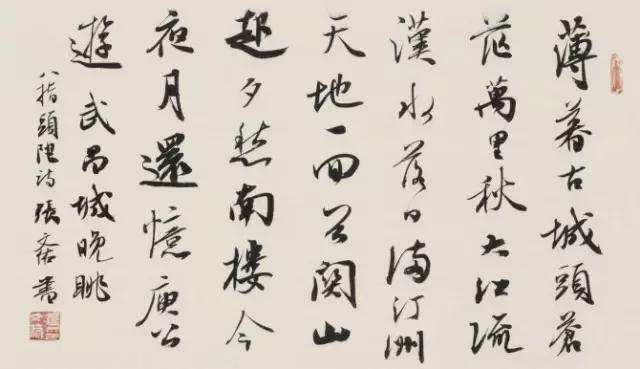 薄暮古城頭蒼
茫萬里秋大江流
漢水落日滿汀洲
天地一回首關山
起夕愁南樓今
夜月還憶庾公
遊武昌城晚眺
八指頭陀詩張書